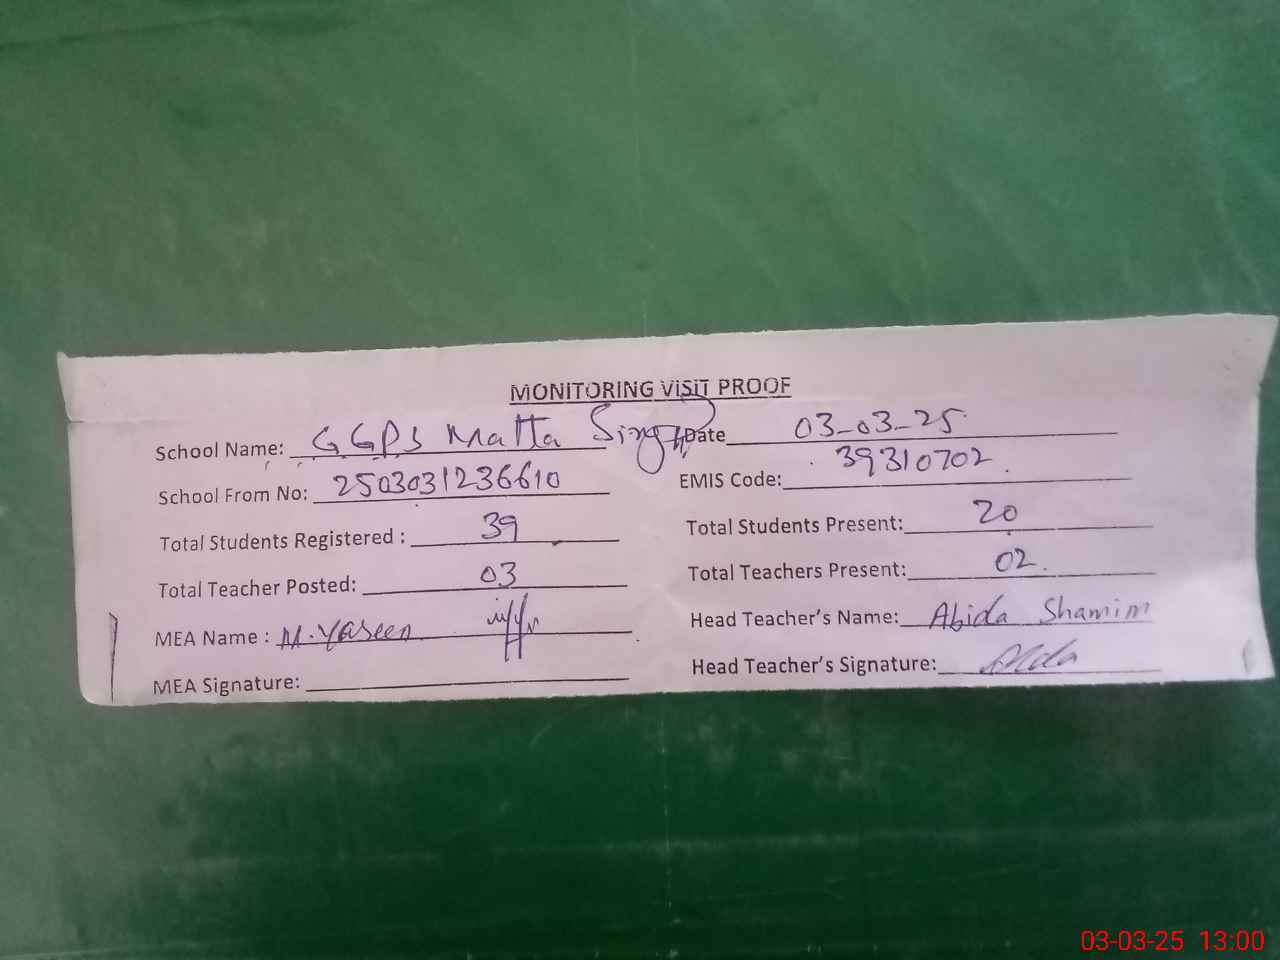 MONITORING VISIT PROOF
School Name: GGPS Matta Singh Date 03-03-25
School From No: 2503031236610 EMIS Code: 39310702
Total Students Registered : 39 Total Students Present: 20
Total Teacher Posted: 03 Total Teachers Present: 02
MEA Name : M.Yaseen Head Teacher's Name: Abida Shamim
MEA Signature: Head Teacher's Signature:
03-03-25 13:00